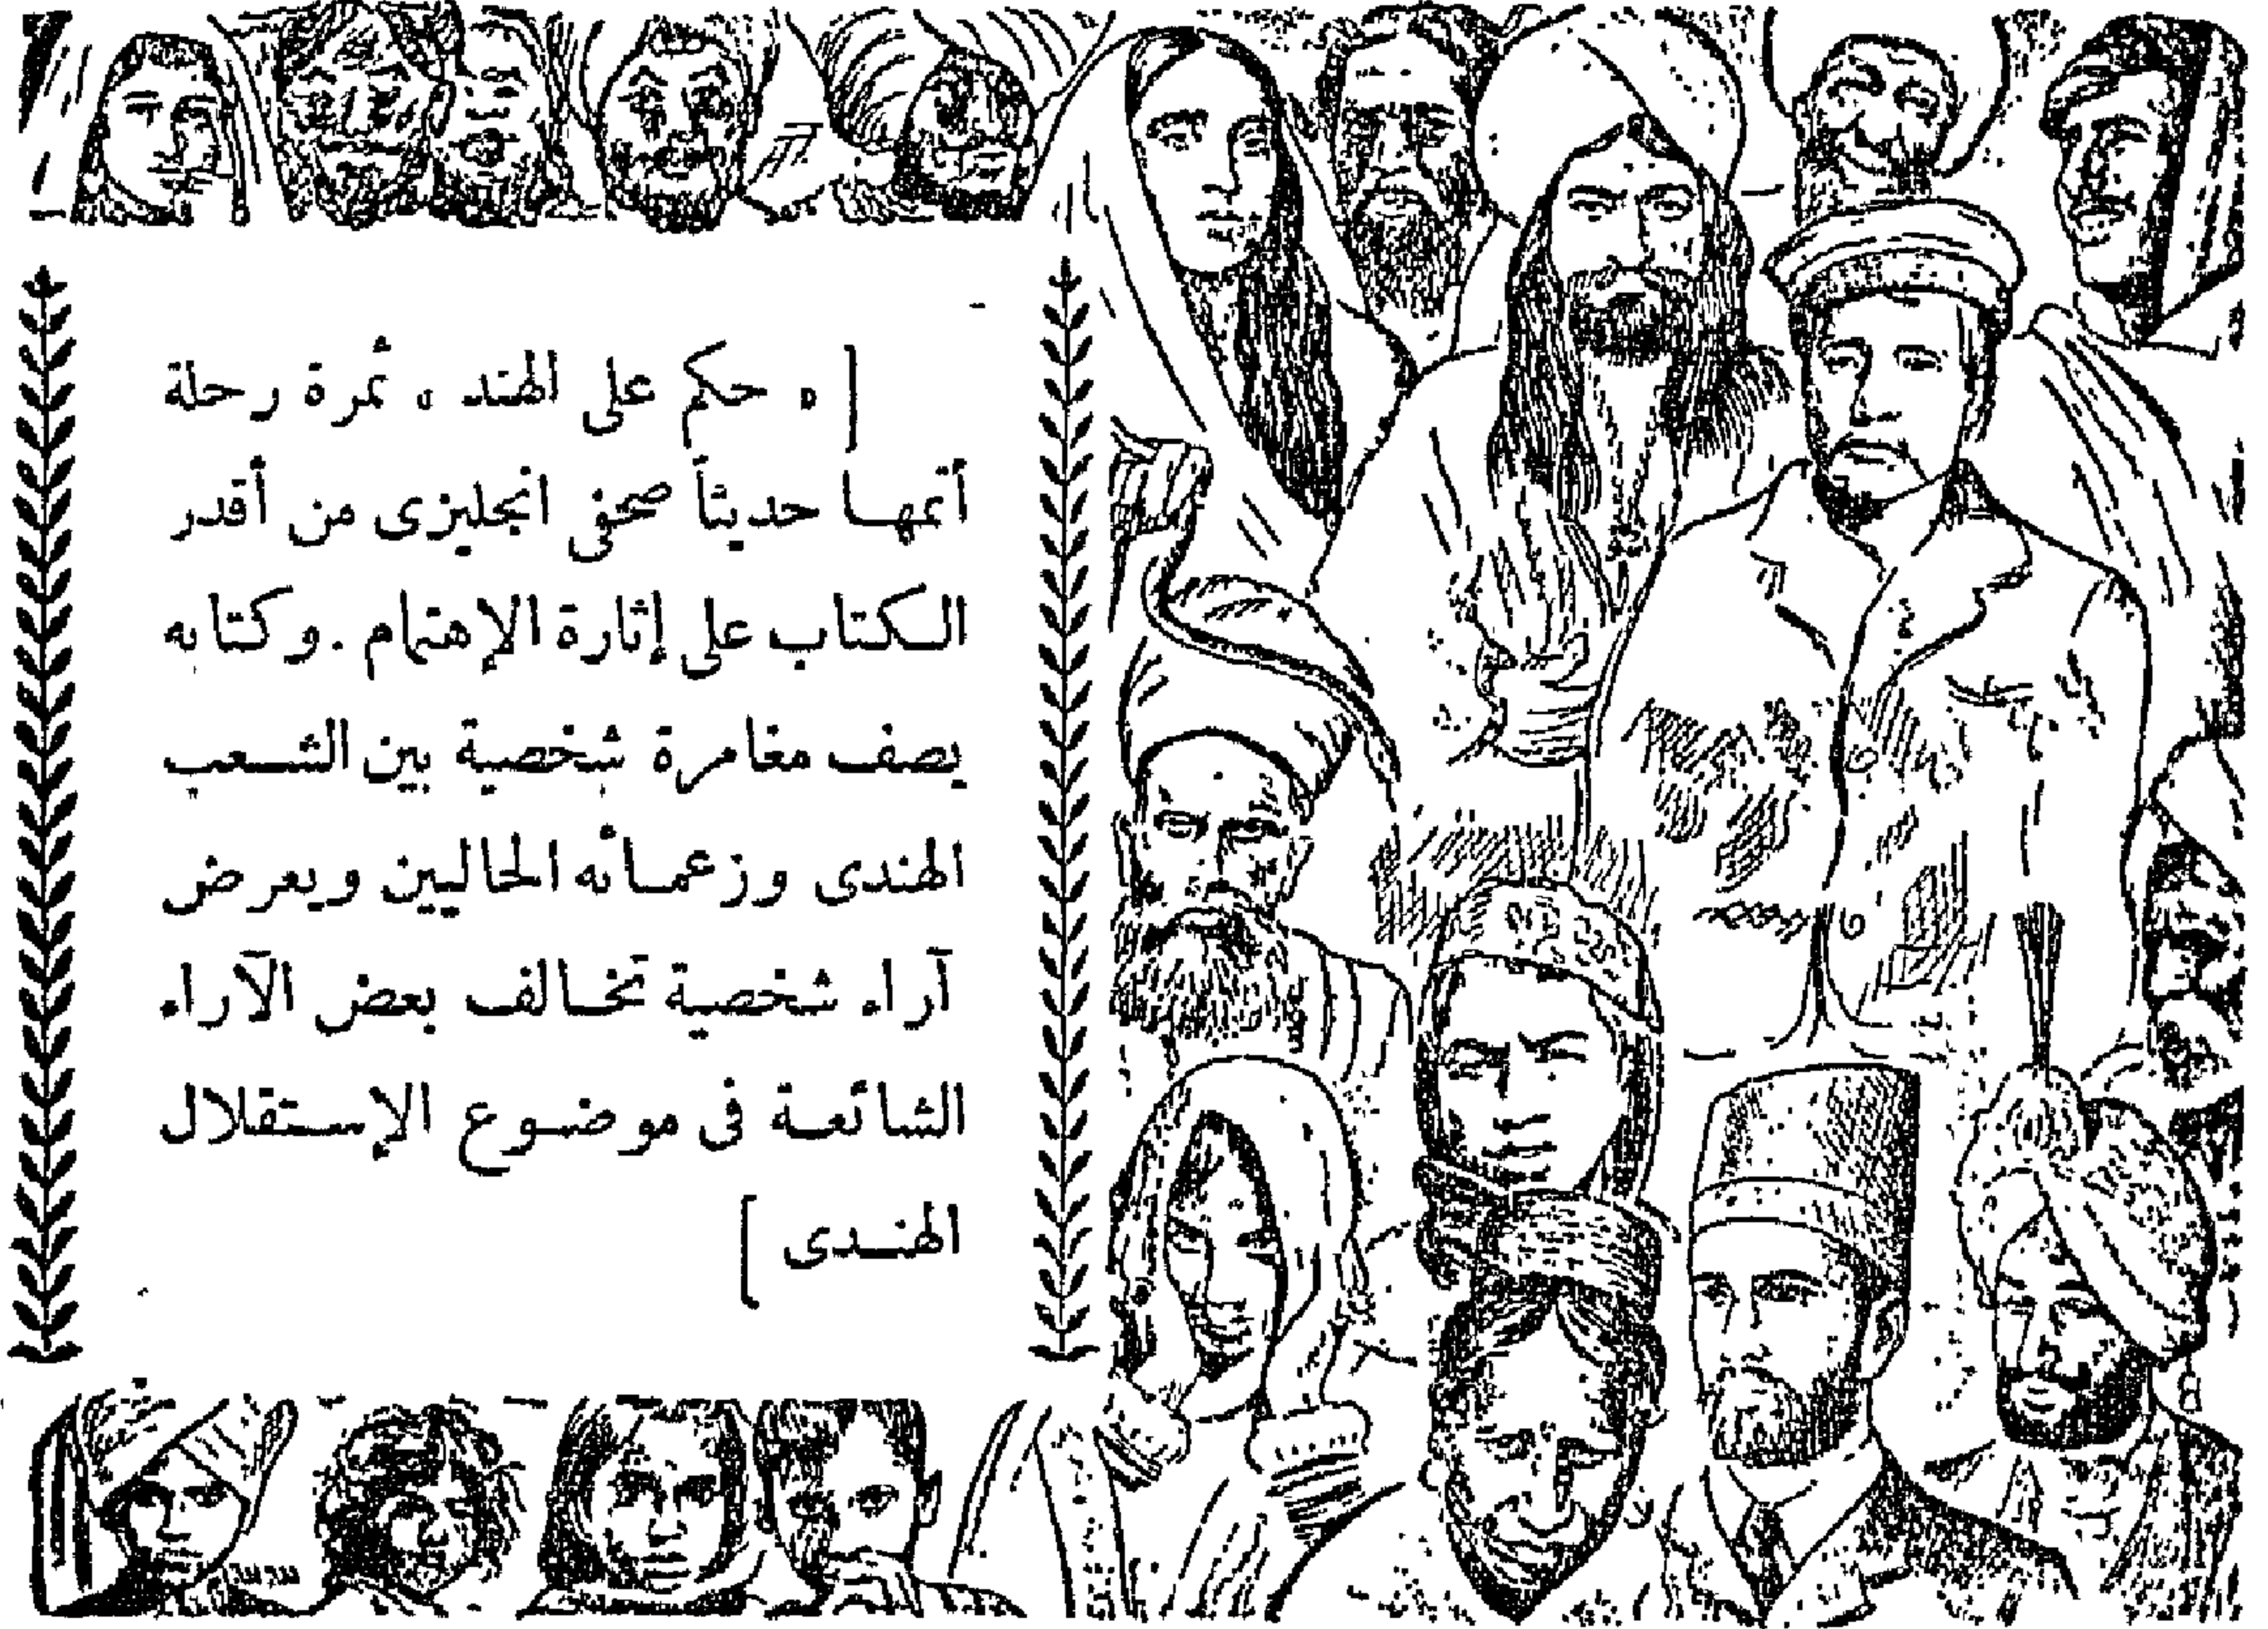 [ « حكم على الهند » ثمرة رحلة
أتمها حديثاً صحفى انجليزى من أقدر
الكتاب على إثارة الإهتمام . وكتابه
يصف مغامرة شخصية بين الشعب
الهندى وزعمائه الحاليين ويعرض
آراء شخصية تخالف بعض الآراء
الشائعة فى موضوع الإستقلال
الهندى ]